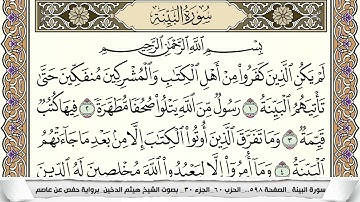 سُورَةُ الْبَيِّنَةِ
بِسْمِ اللَّهِ الرَّحْمَٰنِ الرَّحِيمِ
لَمْ يَكُنِ الَّذِينَ كَفَرُوا مِنْ أَهْلِ الْكِتَابِ وَالْمُشْرِكِينَ مُنفَكِّينَ حَتَّىٰ
تَأْتِيَهُمُ الْبَيِّنَةُ ١ رَسُولٌ مِّنَ اللَّهِ يَتْلُو صُحُفًا مُّطَهَّرَةً ٢ فِيهَا كُتُبٌ
قَيِّمَةٌ ٣ وَمَا تَفَرَّقَ الَّذِينَ أُوتُوا الْكِتَابَ إِلَّا مِن بَعْدِ مَا جَاءَتْهُمُ
الْبَيِّنَةُ ٤ وَمَا أُمِرُوا إِلَّا لِيَعْبُدُوا اللَّهَ مُخْلِصِينَ لَهُ الدِّينَ
سورة البينة _الصفحة ٥٩٨_ الحزب ٦٠_الجزء ٣٠_ بصوت الشيخ هيثم الدخين_ برواية حفص عن عاصم